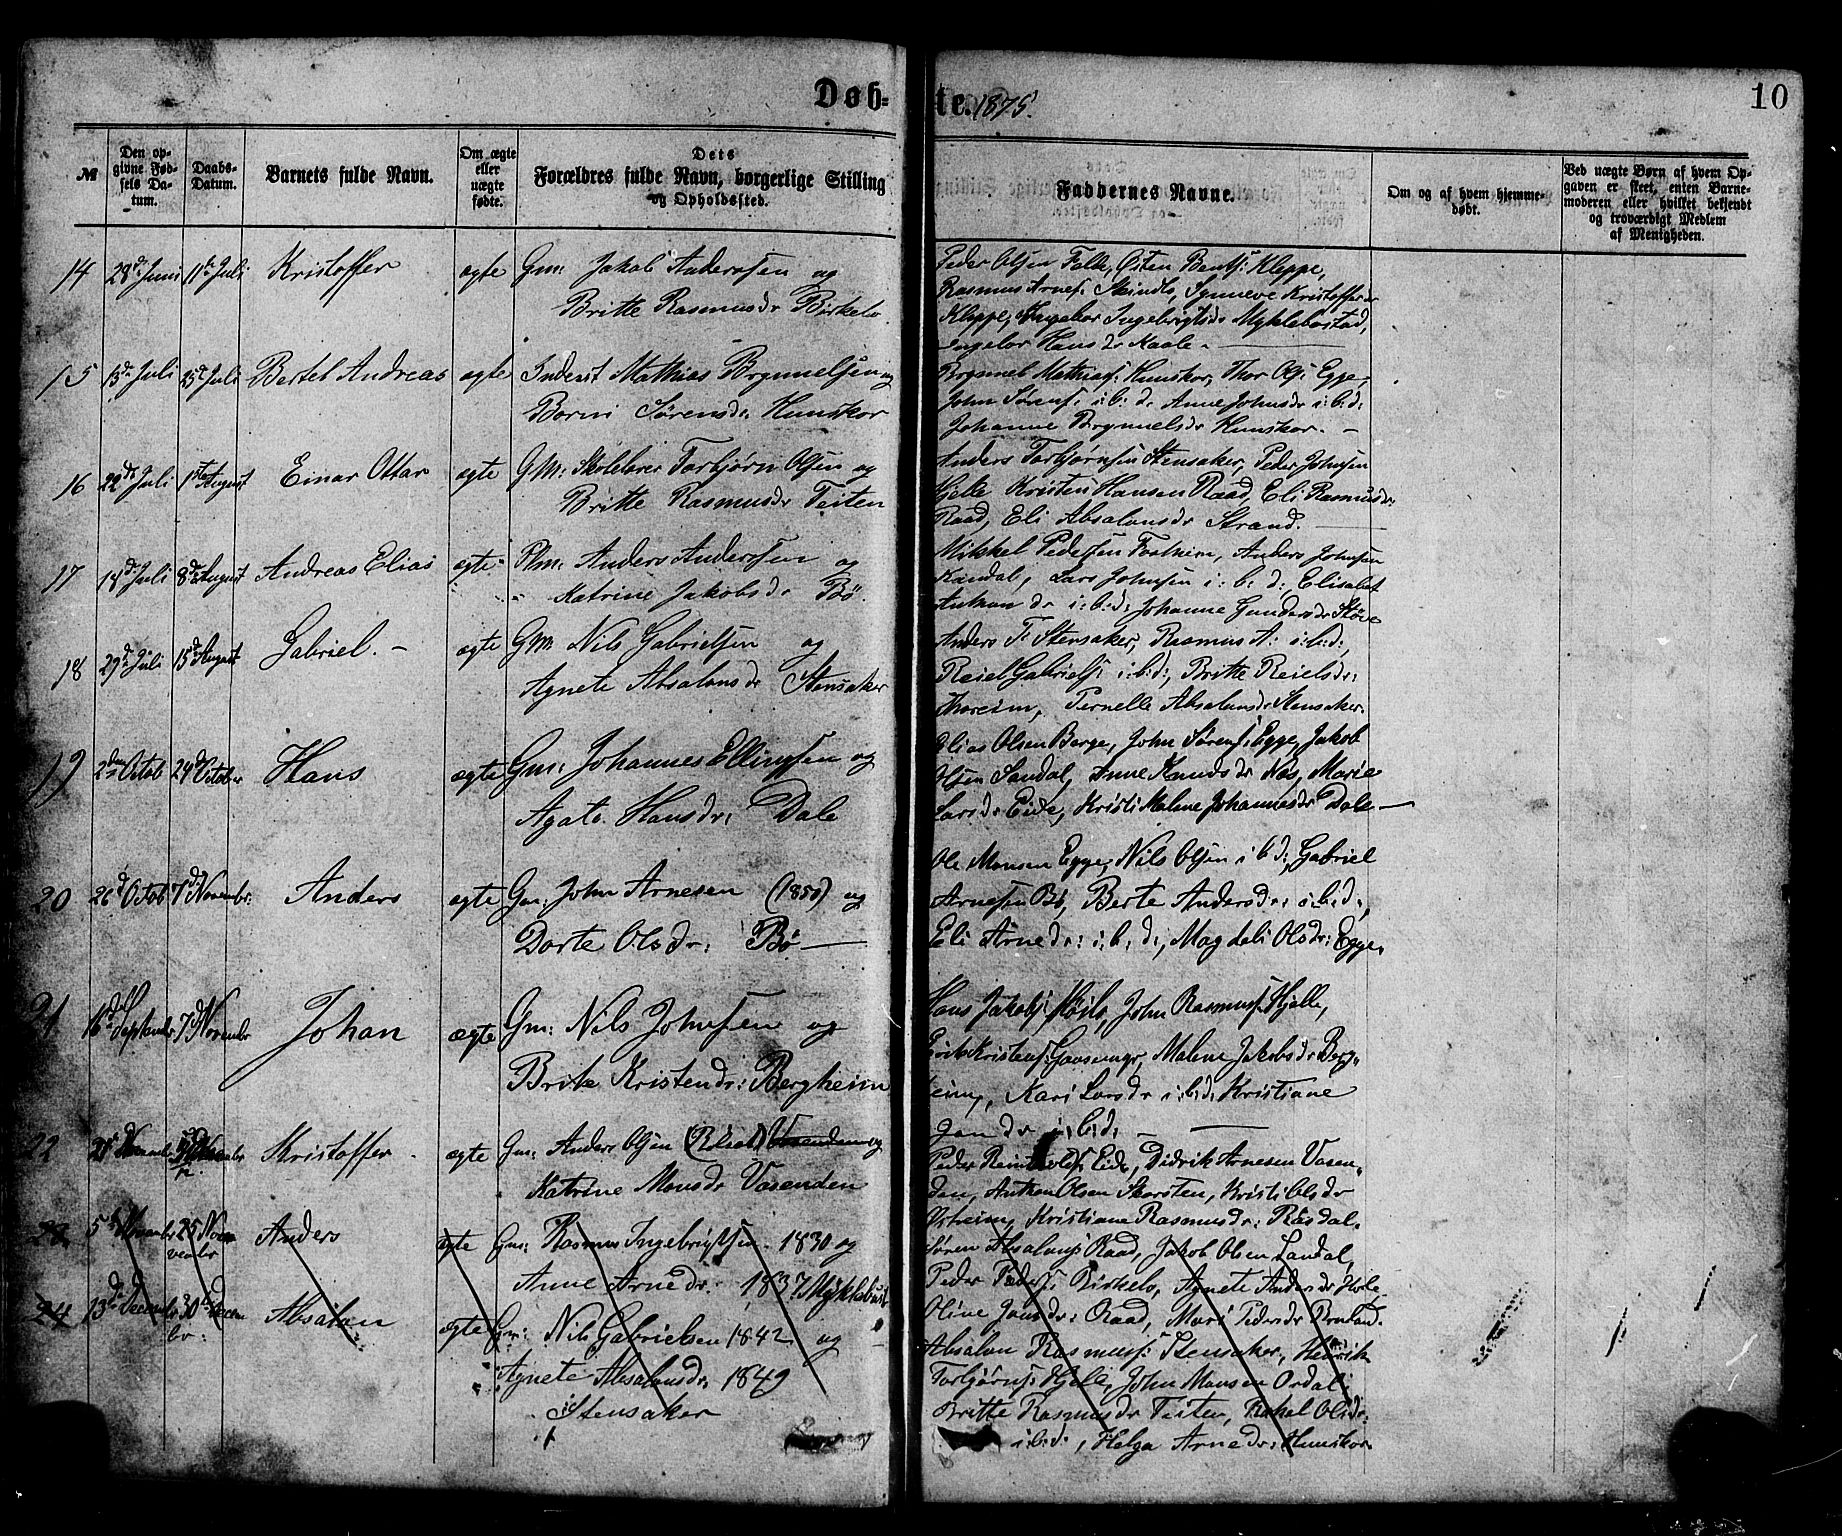 Døb-te. 1875.
10
№ | Den opgivne Fødsels Datum. | Daabs-Datum. | Barnets fulde Navn. | Om ægte eller uægte fødte. | Dets Forældres fulde Navn, borgerlige Stilling og Opholdssted. | Faddernes Navne. | Om og af hvem hjemmedøbt. | Ved uægte Børn af hvem Opgaven er skeet, enten Barnemoderen eller hvilket bekjendt og troværdigt Medlem af Menigheden.
14 28de Juni 11te Juli Kristoffer ægte Gm: Jakob Anderssen og
Britte Rasmusdr Birkelo
Peder Olsen Folde, Østen Bentsf: Kleppe,
Rasmus Arnesf. Skindlo, Synneve Kristofferdr
Kleppe, Ingebor Ingebrigtsdr Myklebostad,
Ingebor Hansdr Kaale –
15 13de Juli 25de Juli Bertel Andreas ægte Inderst Mathias Brynnelsen og
Borni Sørensdr. Humskor
Brynnel Mathiasf: Humskor, Thor Olsf Egge,
John Sørensf i:b:d: Anne Johnsdr i:b:d:
Johanne Brynnelsdr Humskor. –
16 22de Juli 1ste August Einar Ottar ægte G.M: Skolelærer Torbjørn Olsen og
Britte Rasmusdr Teiten
Anders Torbjørnsen Stensaker, Peder Johnsen
Hjelle Kristen Hansen Raad, Eli Rasmusdr:
Raad, Eli Absalonsdr Strand.
17 14de Juli 8de August Andreas Elias ægte Plm: Anders Anderssen og
Katrine Jakobsdr Bø.
Mikkel Pederssen Fosheim, Anders Johnsen
Kandal, Lars Johnsen i:b:d: Elisabet
Anthon dr i:b:d: Johanne Gundersdr Støve
18 29de Juli 15de August Gabriel. – ægte GM: Nils Gabrielsen og
Agnete Absalonsdr Stensaker
Anders T: Stensaker, Rasmus A: i:b:d:,
Reiel Gabrielsf i:b:d:, Britte Reielsdr:
Thoreim, Pernelle Absalonsdr Stensaker.
19 2den Octob 24de October Hans ægte Gm: Johannes Ellingsen og
Agate Hansdr: Dale
Elias Olsen Berge, John Sørensf: Egge, Jakob
Olsen Sandal, Anne Knudsdr Nes, Marie
Larsdr Eide, Kristi Malene Johannesdr Dale –
20 26de Octob 7de Novembr: Anders ægte Gm: John Arnesen (1850) og
Dorte Olsdr: Bø –
Ole Monsen Egge, Nils Olsen i b d; Gabriel
Arnesen Bø, Berte Andersdr: i:b:d:,
Eli Arnedr: i:b:d:, Magdeli Olsdr: Egge.
21 16de September 7de Novembr Johan ægte Gm: Nils Johnsen og
Brite Kristendr: Bergheim
Hans Jakobsf, John Rasmusf. Hjelle,
Kristensf: Malene Jakobsdr Berg-
heim, Kari Larsdr i:b:d: Kristiane
Jansdr i:b:d: –
22 Kristoffer ægte Gm: Anders Olsen og
Katrine Monsdr Vasenden
Peder Eide, Didrik Arnesen Vasen-
den, Anthon Olsen Skorsten, Kristi Olsdr
Osheim, Kristiane Rasmusdr: Rosdal.
23 5te Novembr 25 Novvembr Anders ægte Gm: Rasmus Ingebrigtsen 1830 og
Anne Arnedr: 1837 Myklebust
Søren Absalonsf Raad, Jakob Olsen Sandal,
Peder Pedersf Birkelo, Agnete Andersdr Hole
Oline Jonsdr: Raad, Mari Pedersdr
24 13de Decembr 30te Decembr: Absalon ægte Gm: Nils Gabrielsen 1842 og
Agnete Absalonsdr. 1849
Stensaker
Absalon Rasmusf: Stensaker, Henrik
Torbjørnsf Hjelle, John Monsen Ordal:
Britte Rasmusdr Teiten, Rakel Olsdr:
i:b:d:, Helga Arnedr: Humskor.